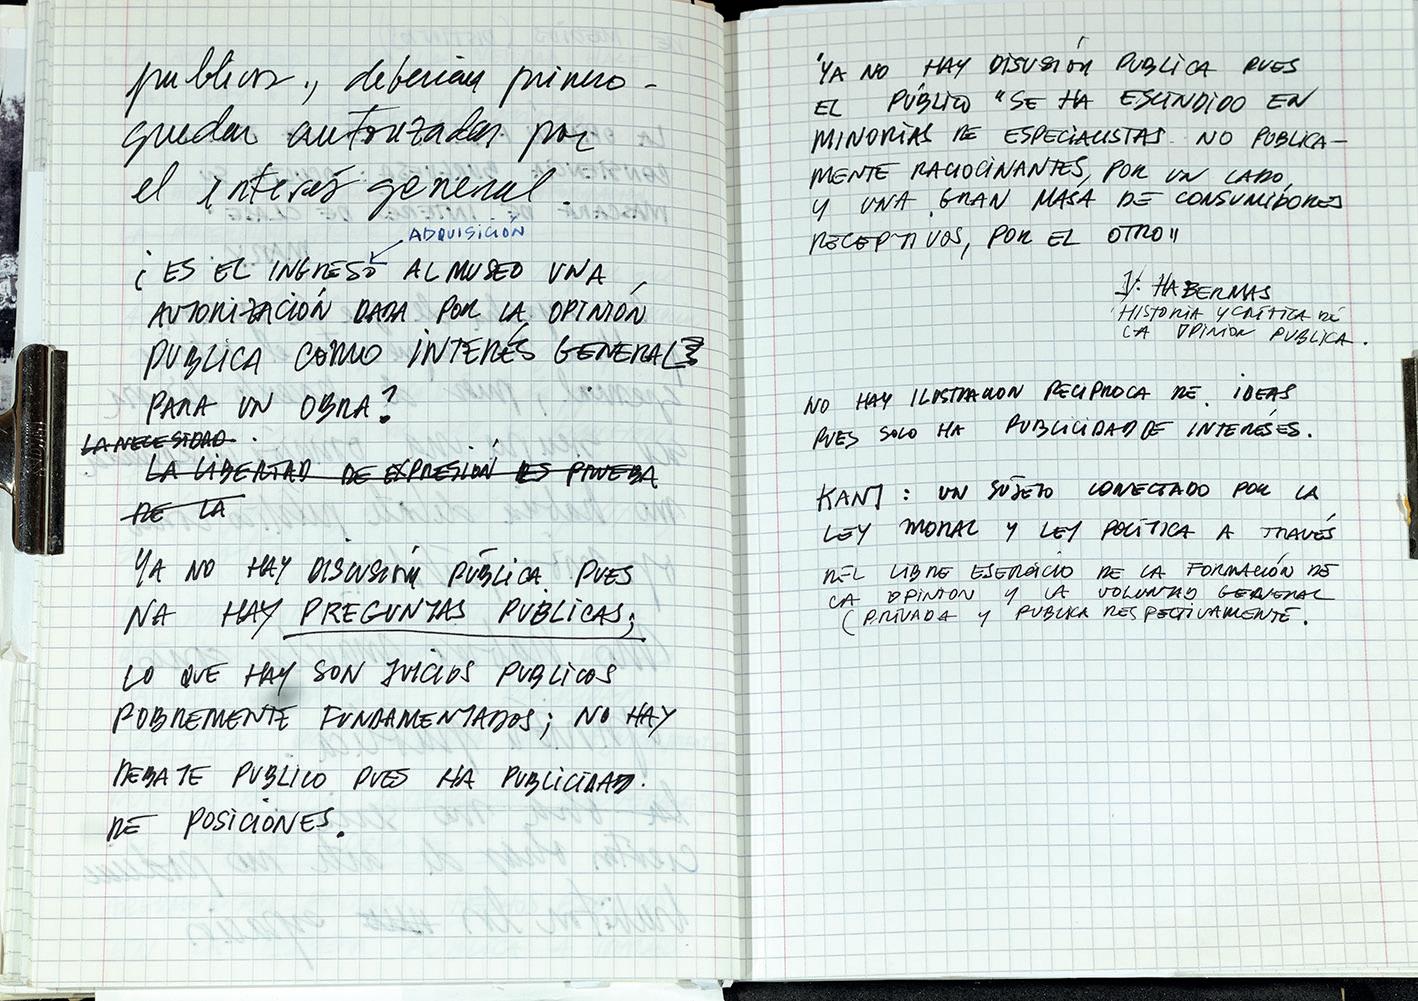 publicas, deberian primero
quedar autorizadas por
el interés general.
ADQUISICIÓN
¿ES EL INGRESO AL MUSEO UNA
AUTORIZACIÓN DADA POR LA OPINIÓN
PUBLICA COMO INTERÉS GENERAL
PARA UN OBRA?
LA NECESIDAD
LA LIBERTAD DE EXPRESIÓN ES PRUEBA
DE LA
YA NO HAY DISCUSIÓN PÚBLICA PUES
NA HAY PREGUNTAS PÚBLICAS;
LO QUE HAY SON JUICIOS PUBLICOS
POBREMENTE FUNDAMENTADOS; NO HAY
DEBATE PUBLICO PUES HA PUBLICIDAD.
DE POSICIONES.
"YA NO HAY DISUSIÓN PUBLICA PUES
EL PÚBLICO "SE HA ESCINDIDO EN
MINORÍAS DE ESPECIALISTAS NO PUBLICA-
MENTE RACIOCINANTES, POR UN LADO,
Y UNA GRAN MASA DE CONSUMIDORES
RECEPTIVOS, POR EL OTRO"
J. HABERMAS
HISTORIA Y CRÍTICA DE
LA OPINION PUBLICA.
NO HAY ILUSTRACION RECÍPROCA DE IDEAS
PUES SOLO HA PUBLICIDAD DE INTERÉSES.
KANT: UN SUJETO CONECTADO POR LA
LEY MORAL Y LEY POLÍTICA A TRAVÉS
DEL LIBRE ESERCICIO DE LA FORMACIÓN DE
LA OPINION Y LA VOLUNTAD GENERAL
(PRIVADA Y PUBLICA RESPECTIVAMENTE.